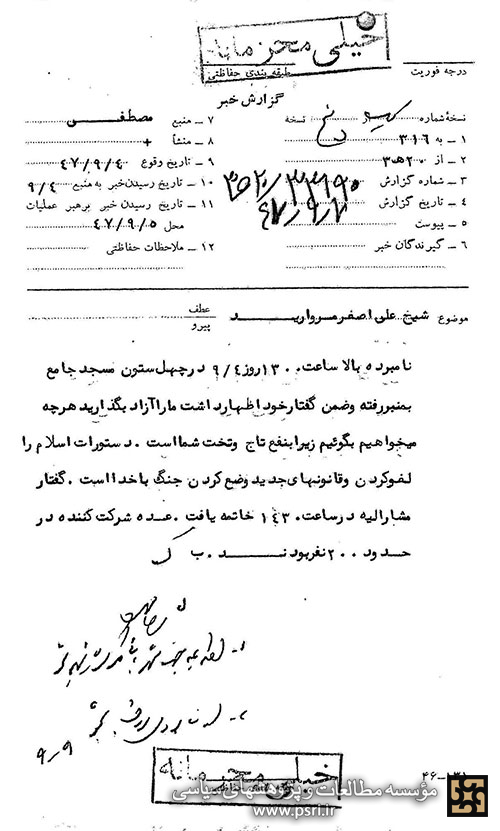 خیلی محرمانه
طبقه بندی حفاظتی
درجه فوریت
گزارش خبر
نسخهٔ شماره از نسخه
۱ ـ به ۳۱۶
۲ ـ از ۲۰ه۳
۳ ـ شماره گزارش
۴ ـ تاریخ گزارش
۵ ـ پیوست
۶ ـ گیرندگان خبر
۷ ـ منبع مصطفی
۸ ـ منشأ +
۹ ـ تاریخ وقوع ۴۷/۹/۴
۱۰ ـ تاریخ رسیدن خبر به منبع ۹/۴
۱۱ ـ تاریخ رسیدن خبر برهبر عملیات
محل ۴۷/۹/۵
۱۲ ـ ملاحظات حفاظتی
موضوع شیخ علی اصغر مروارید
عطف
پیرو
نامبرده بالا ساعت ۱۳۰۰ روز ۹/۴ در چهل ستون مسجد جامع
بمنبر رفته وضمن گفتار خود اظهار داشت ما را آزاد بگذارید هر چه
میخواهیم بگوئیم زیرا بنفع تاج وتخت شما است . دستورات اسلام را
لغو کردن وقانونهای جدید وضع کردن جنگ با خدا است . گفتار
مشارالیه در ساعت ۱۴۳۰ خاتمه یافت . عده شرکت کننده در
حدود ۲۰۰ نفر بودند . ب ک
۹ـ۹
خیلی محرمانه
۴۶-۱۳۱
مؤسسه مطالعات و پژوهشهای سیاسی
www.psri.ir